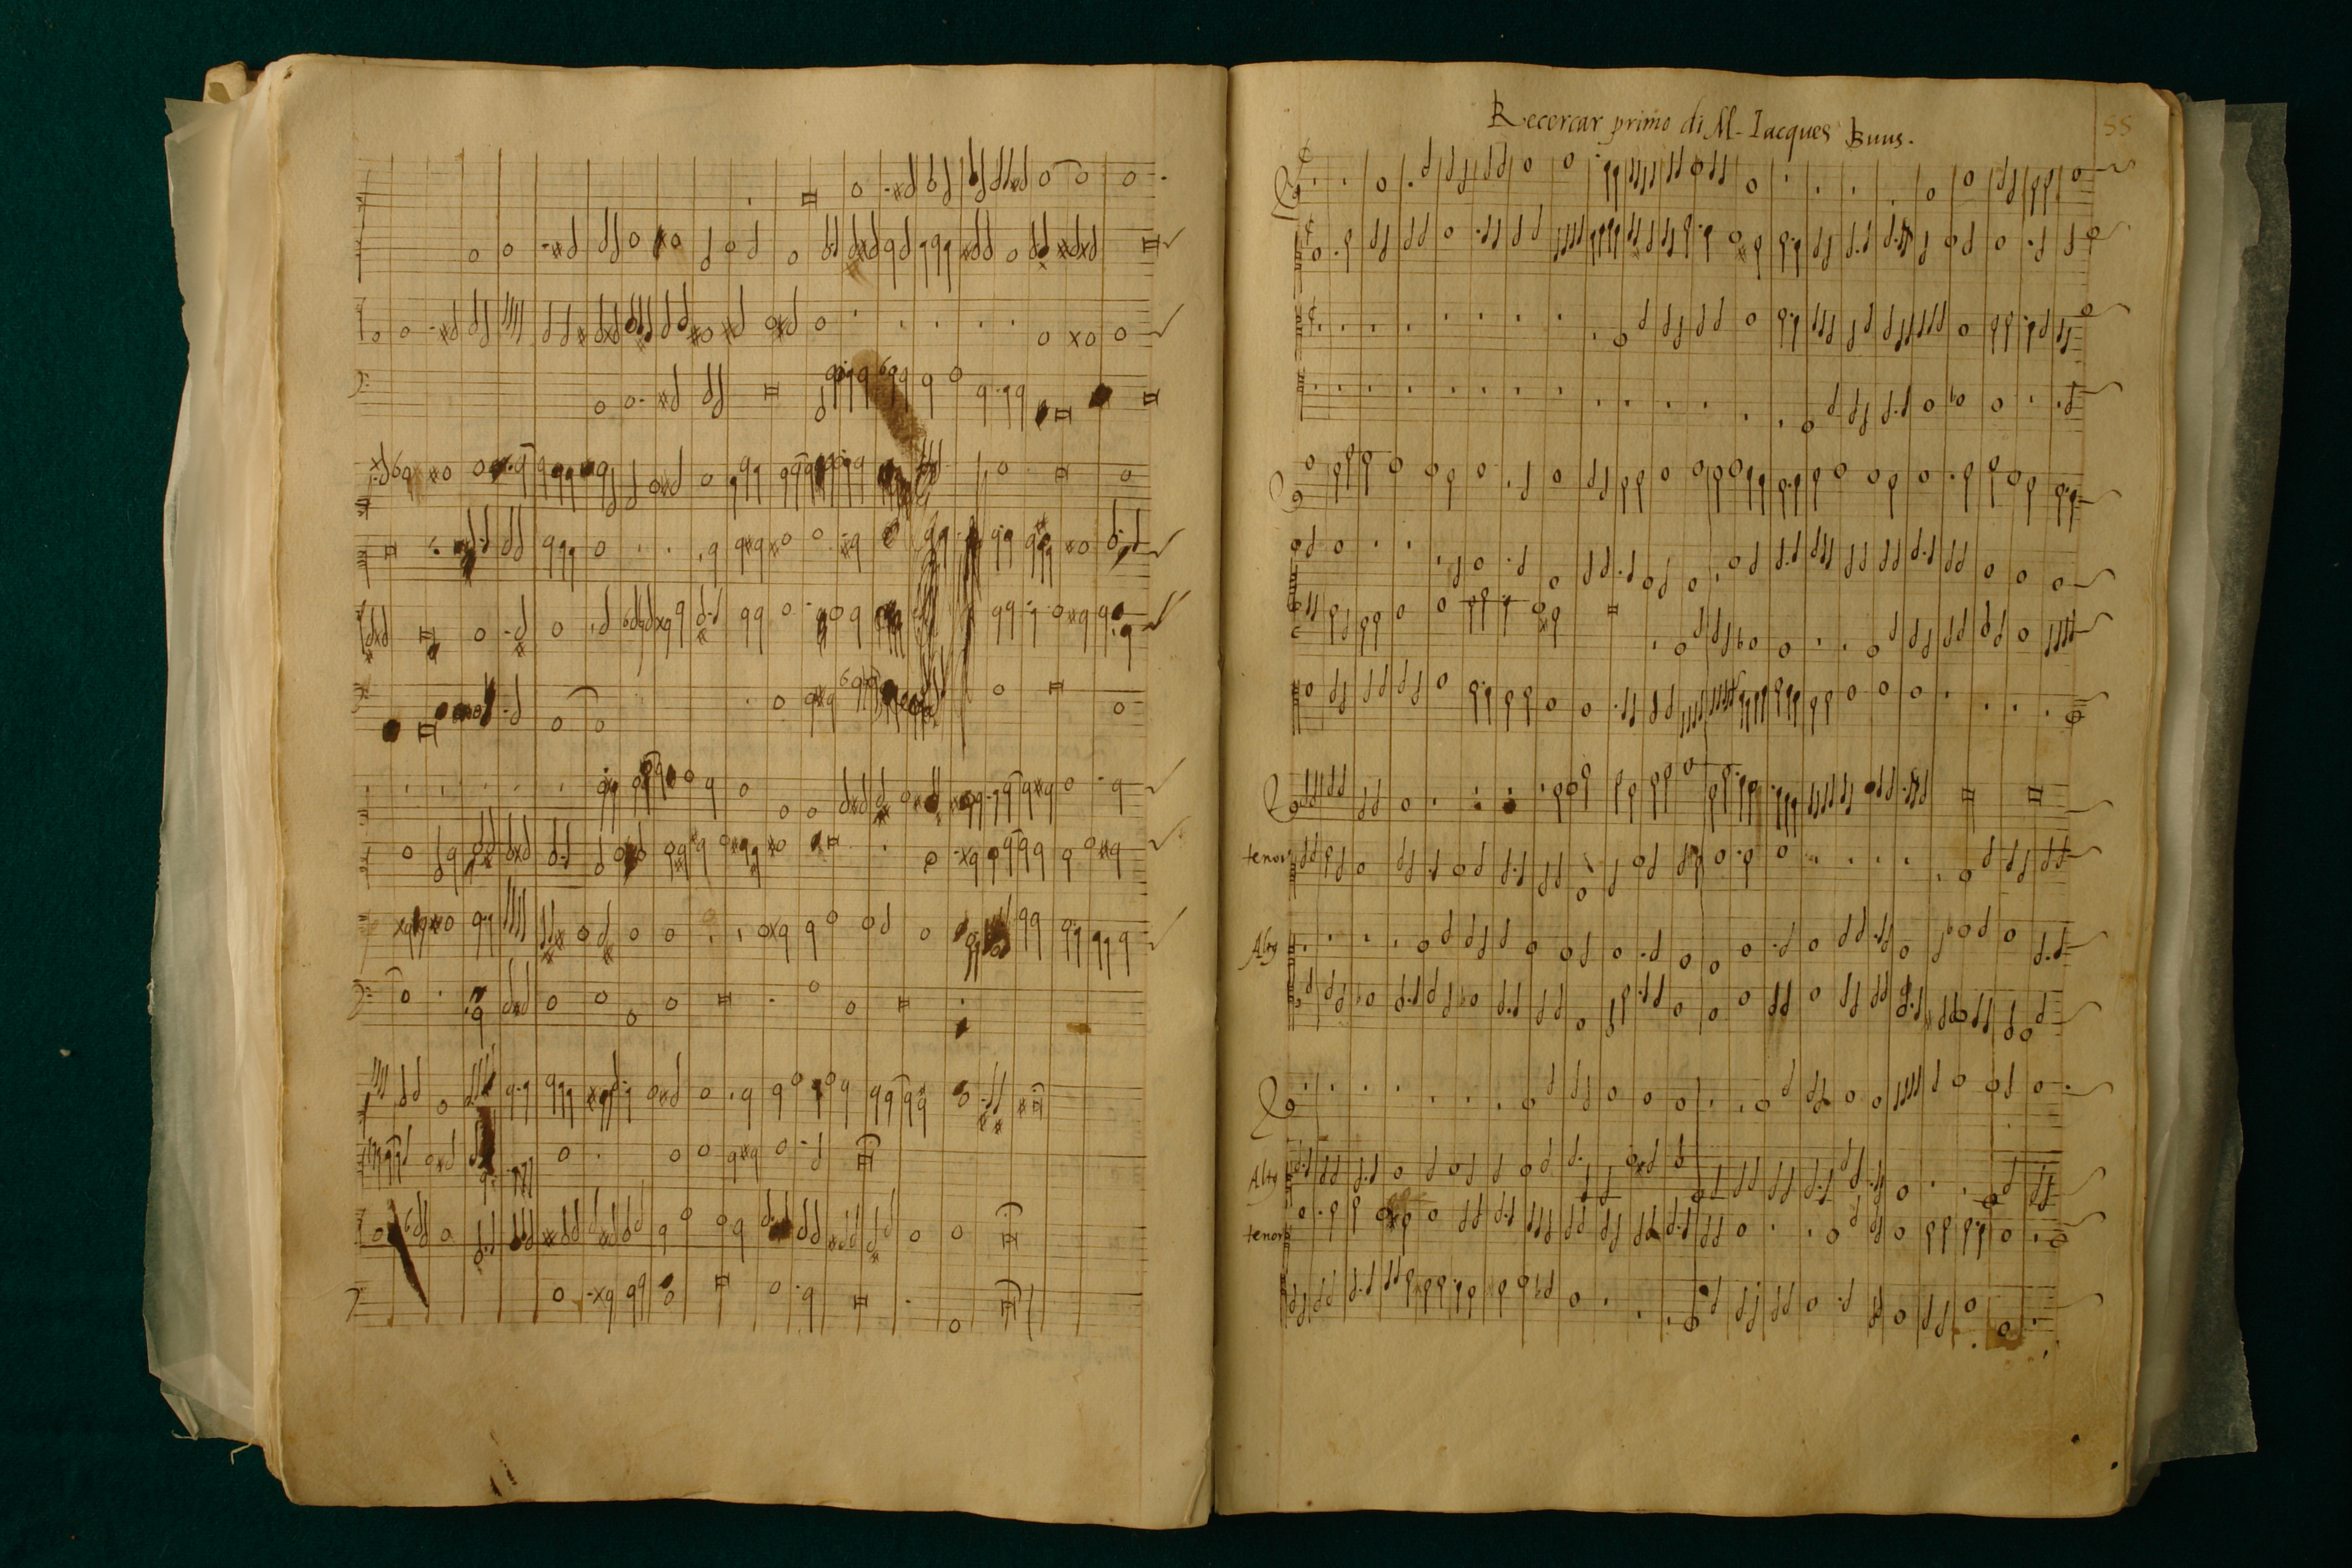 Recercar primo di M. Iacques Buus.
55
tenor
Alty
Alty
tenor